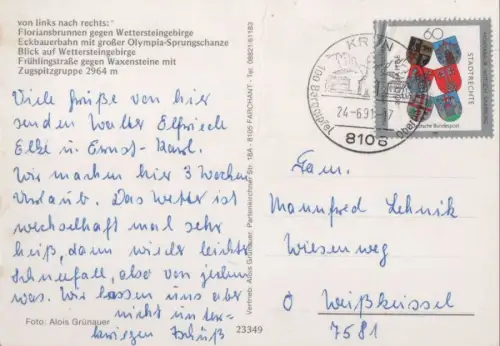 von links nach rechts:
Floriansbrunnen gegen Wettersteingebirge
Eckbauerbahn mit großer Olympia-Sprungschanze
Blick auf Wettersteingebirge
Frühlingstraße gegen Waxensteine mit
Zugspitzgruppe 2964 m
Viele Grüße von hier
senden Walter Elfriede
Elke u. Ernst-Karl.
Wir machen hier 3 Wochen
Urlaub. Das Wetter ist
wechselhaft mal sehr
heiß, dann wieder leichter
Schneefall, also von jedem
was. Wir lassen uns aber
nicht un ter-
kriegen Tschüß
Foto: Alois Grünauer
23349
Vertrieb: Alois Grünauer, Partenkirchner Str. 18A - 8105 FARCHANT - Tel. 08821/61183
KRÜN
24-6.91
8108
60
STADTRECHTE
Deutsche Bundespost
Fam.
Mannfred Lehnik
Wiesenweg
O Weißkeissel
7581